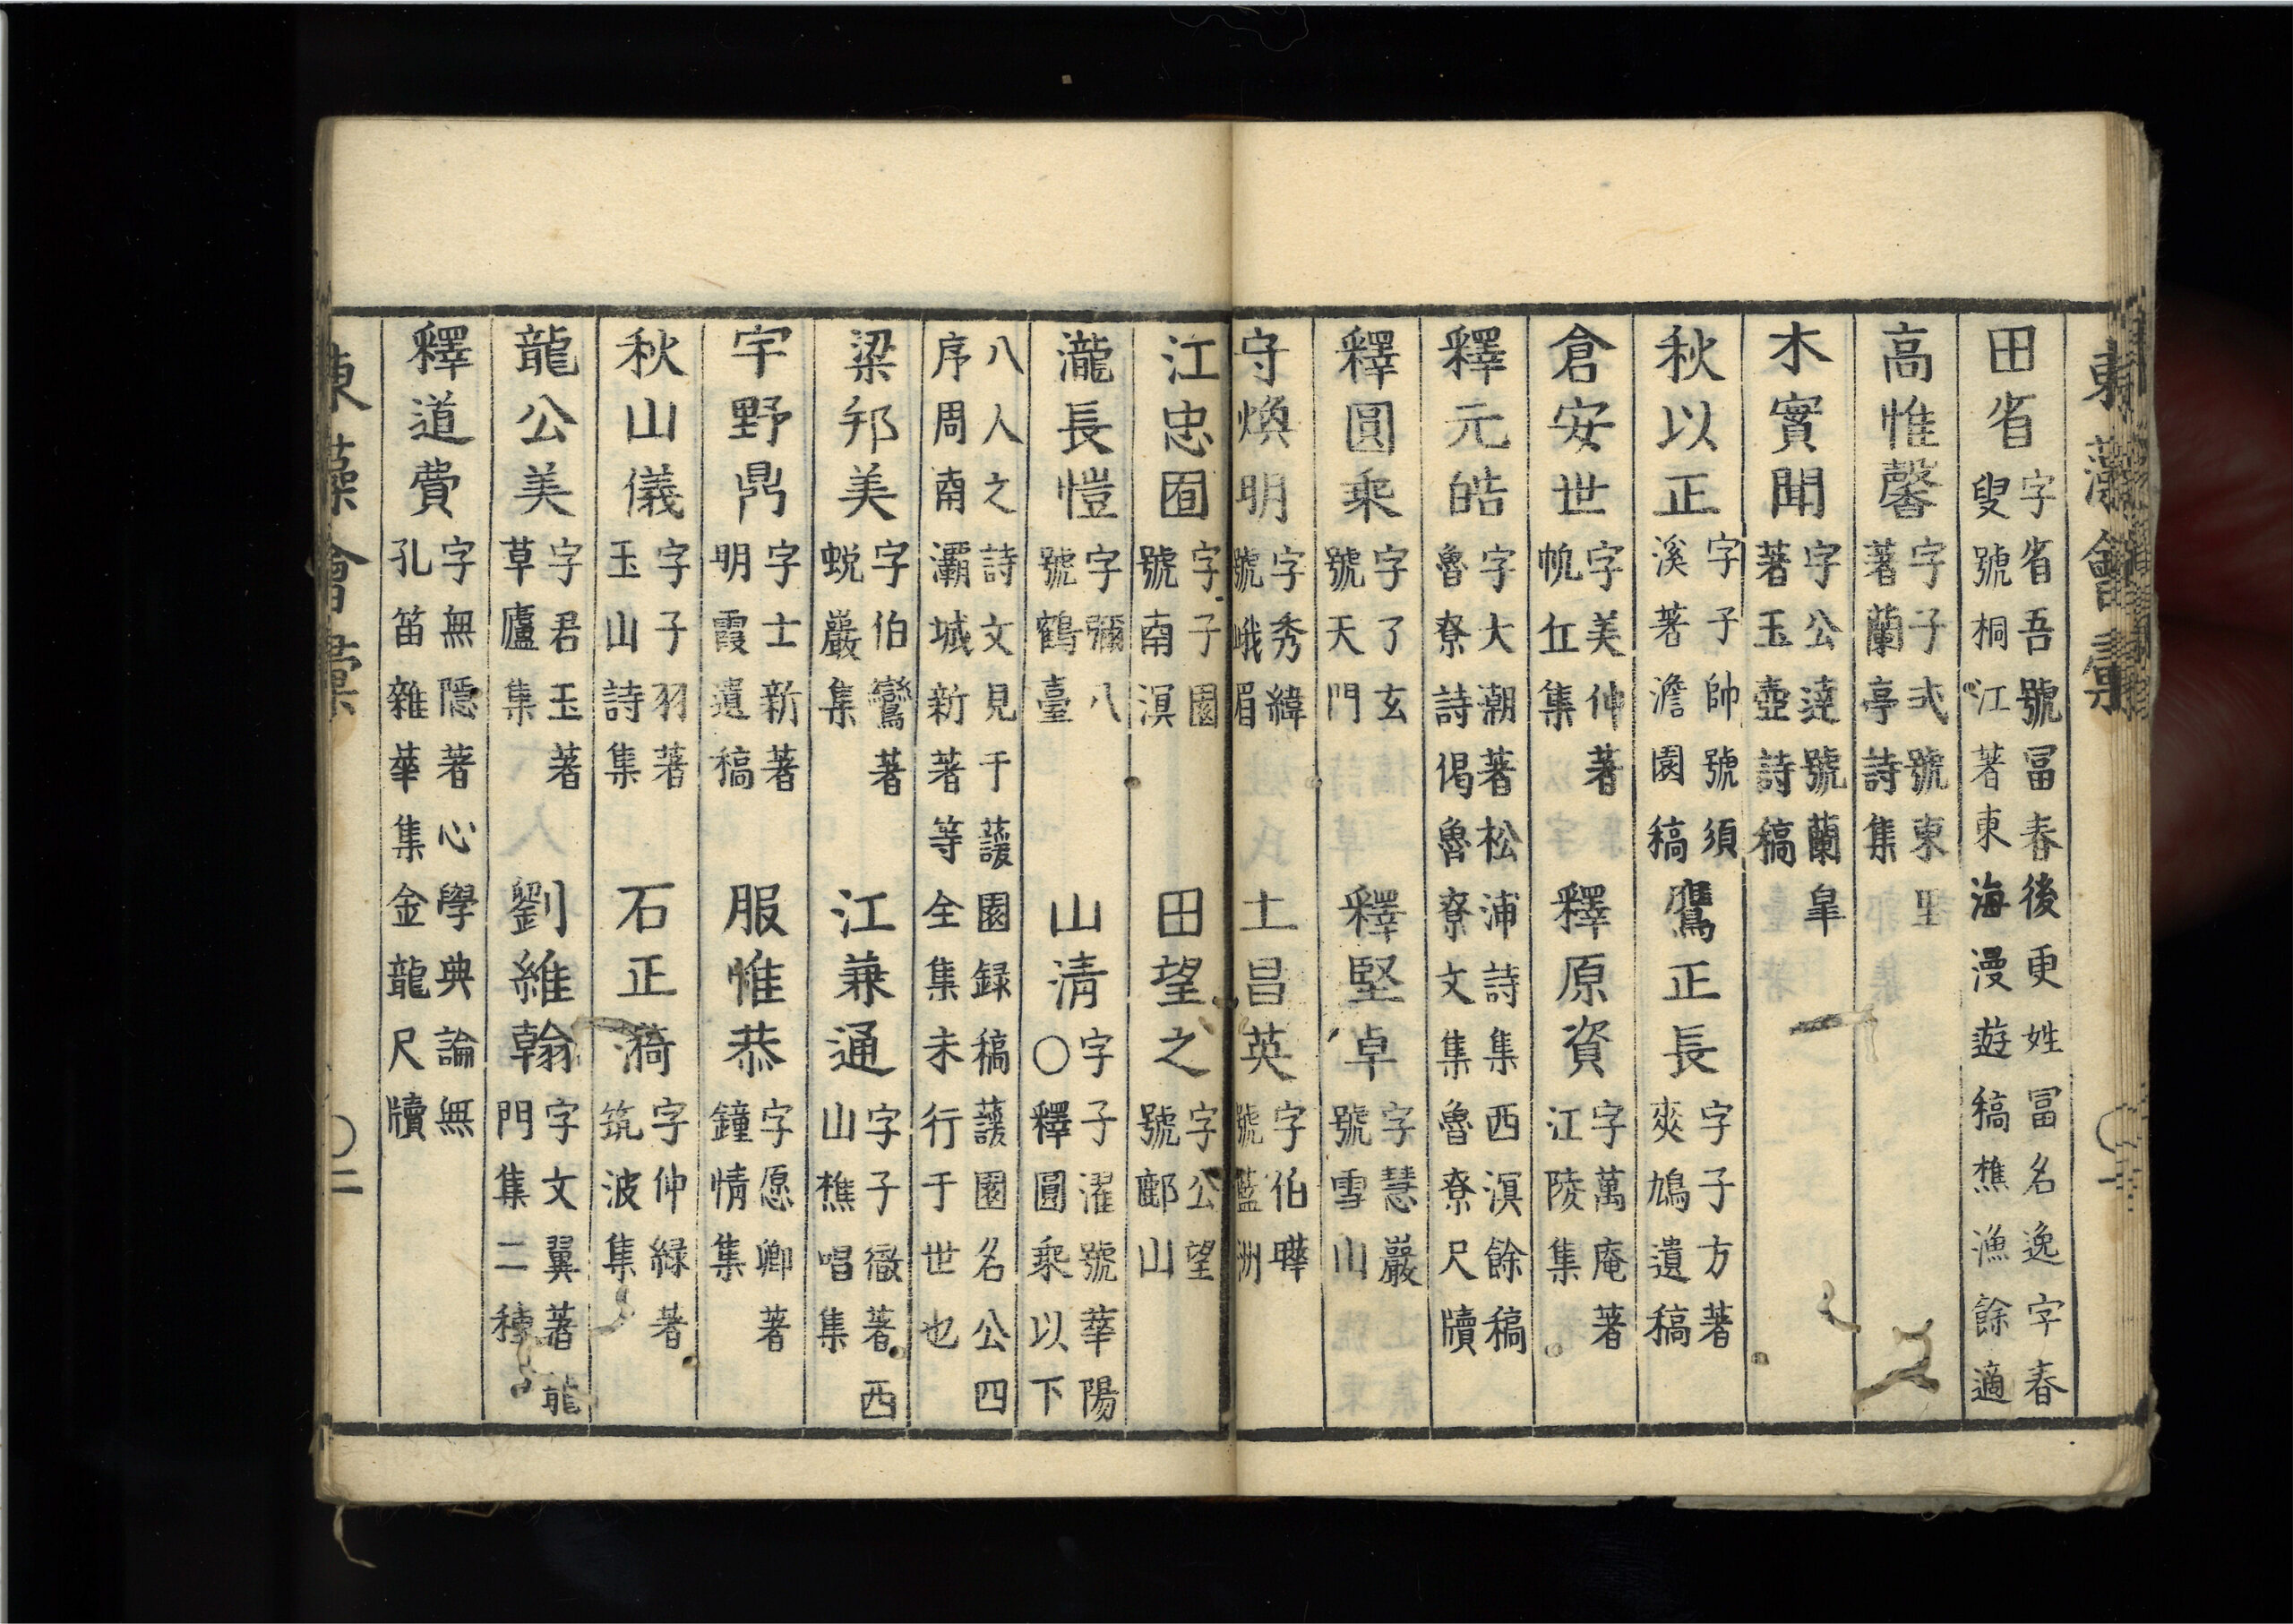 東藻會彙
田省字省吾號冨春後更姓冨名逸字春
叟號桐江著東海漫遊稿樵漁餘適
高惟馨字子式號東里
著蘭亭詩集
木實聞字公達號蘭皐
著玉壺詩稿
秋以正字子帥號須
溪著澹園稿
鷹正長字子方著
爽鳩遺稿
倉安世字美仲著
帆丘集
釋原資字萬庵著
江陵集
釋元皓字大潮著松浦詩集西溟餘稿
魯寮詩偈魯寮文集魯寮尺牘
釋圓乘字了玄
號天門
釋堅卓字慧巖
號雪山
守煥明字秀緯
號峨眉
土昌英字伯曄
號藍洲
江忠囿字子園
號南溟
田望之字公望
號鄜山
瀧長愷字彌八
號鶴臺
山淸字子濯號華陽
○釋圓乘以下
八人之詩文見于蘐園録稿蘐園名公四
序周南灞城新著等全集未行于世也
梁邦美字伯鸞著
蛻巖集
江兼通字子徹著西
山樵唱集
宇野鼎字士新著
明霞遺稿
服惟恭字愿卿著
鐘情集
秋山儀字子羽著
玉山詩集
石正漪字仲緑著
筑波集
龍公美字君玉著
草廬集
劉維翰字文翼著龍
門集二種
釋道費字無隱著心學典論無
孔笛雜華集金龍尺牘
東藻會彙
○二